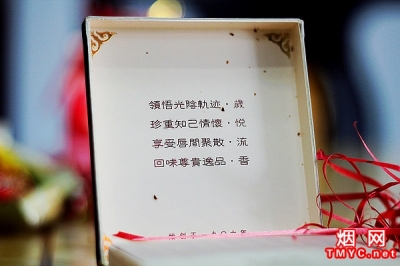 領悟光陰軌迹·歲
珍重知己情懷·悦
享受唇間聚散·流
回味尊貴逸品·香
烟网
TMYC.net